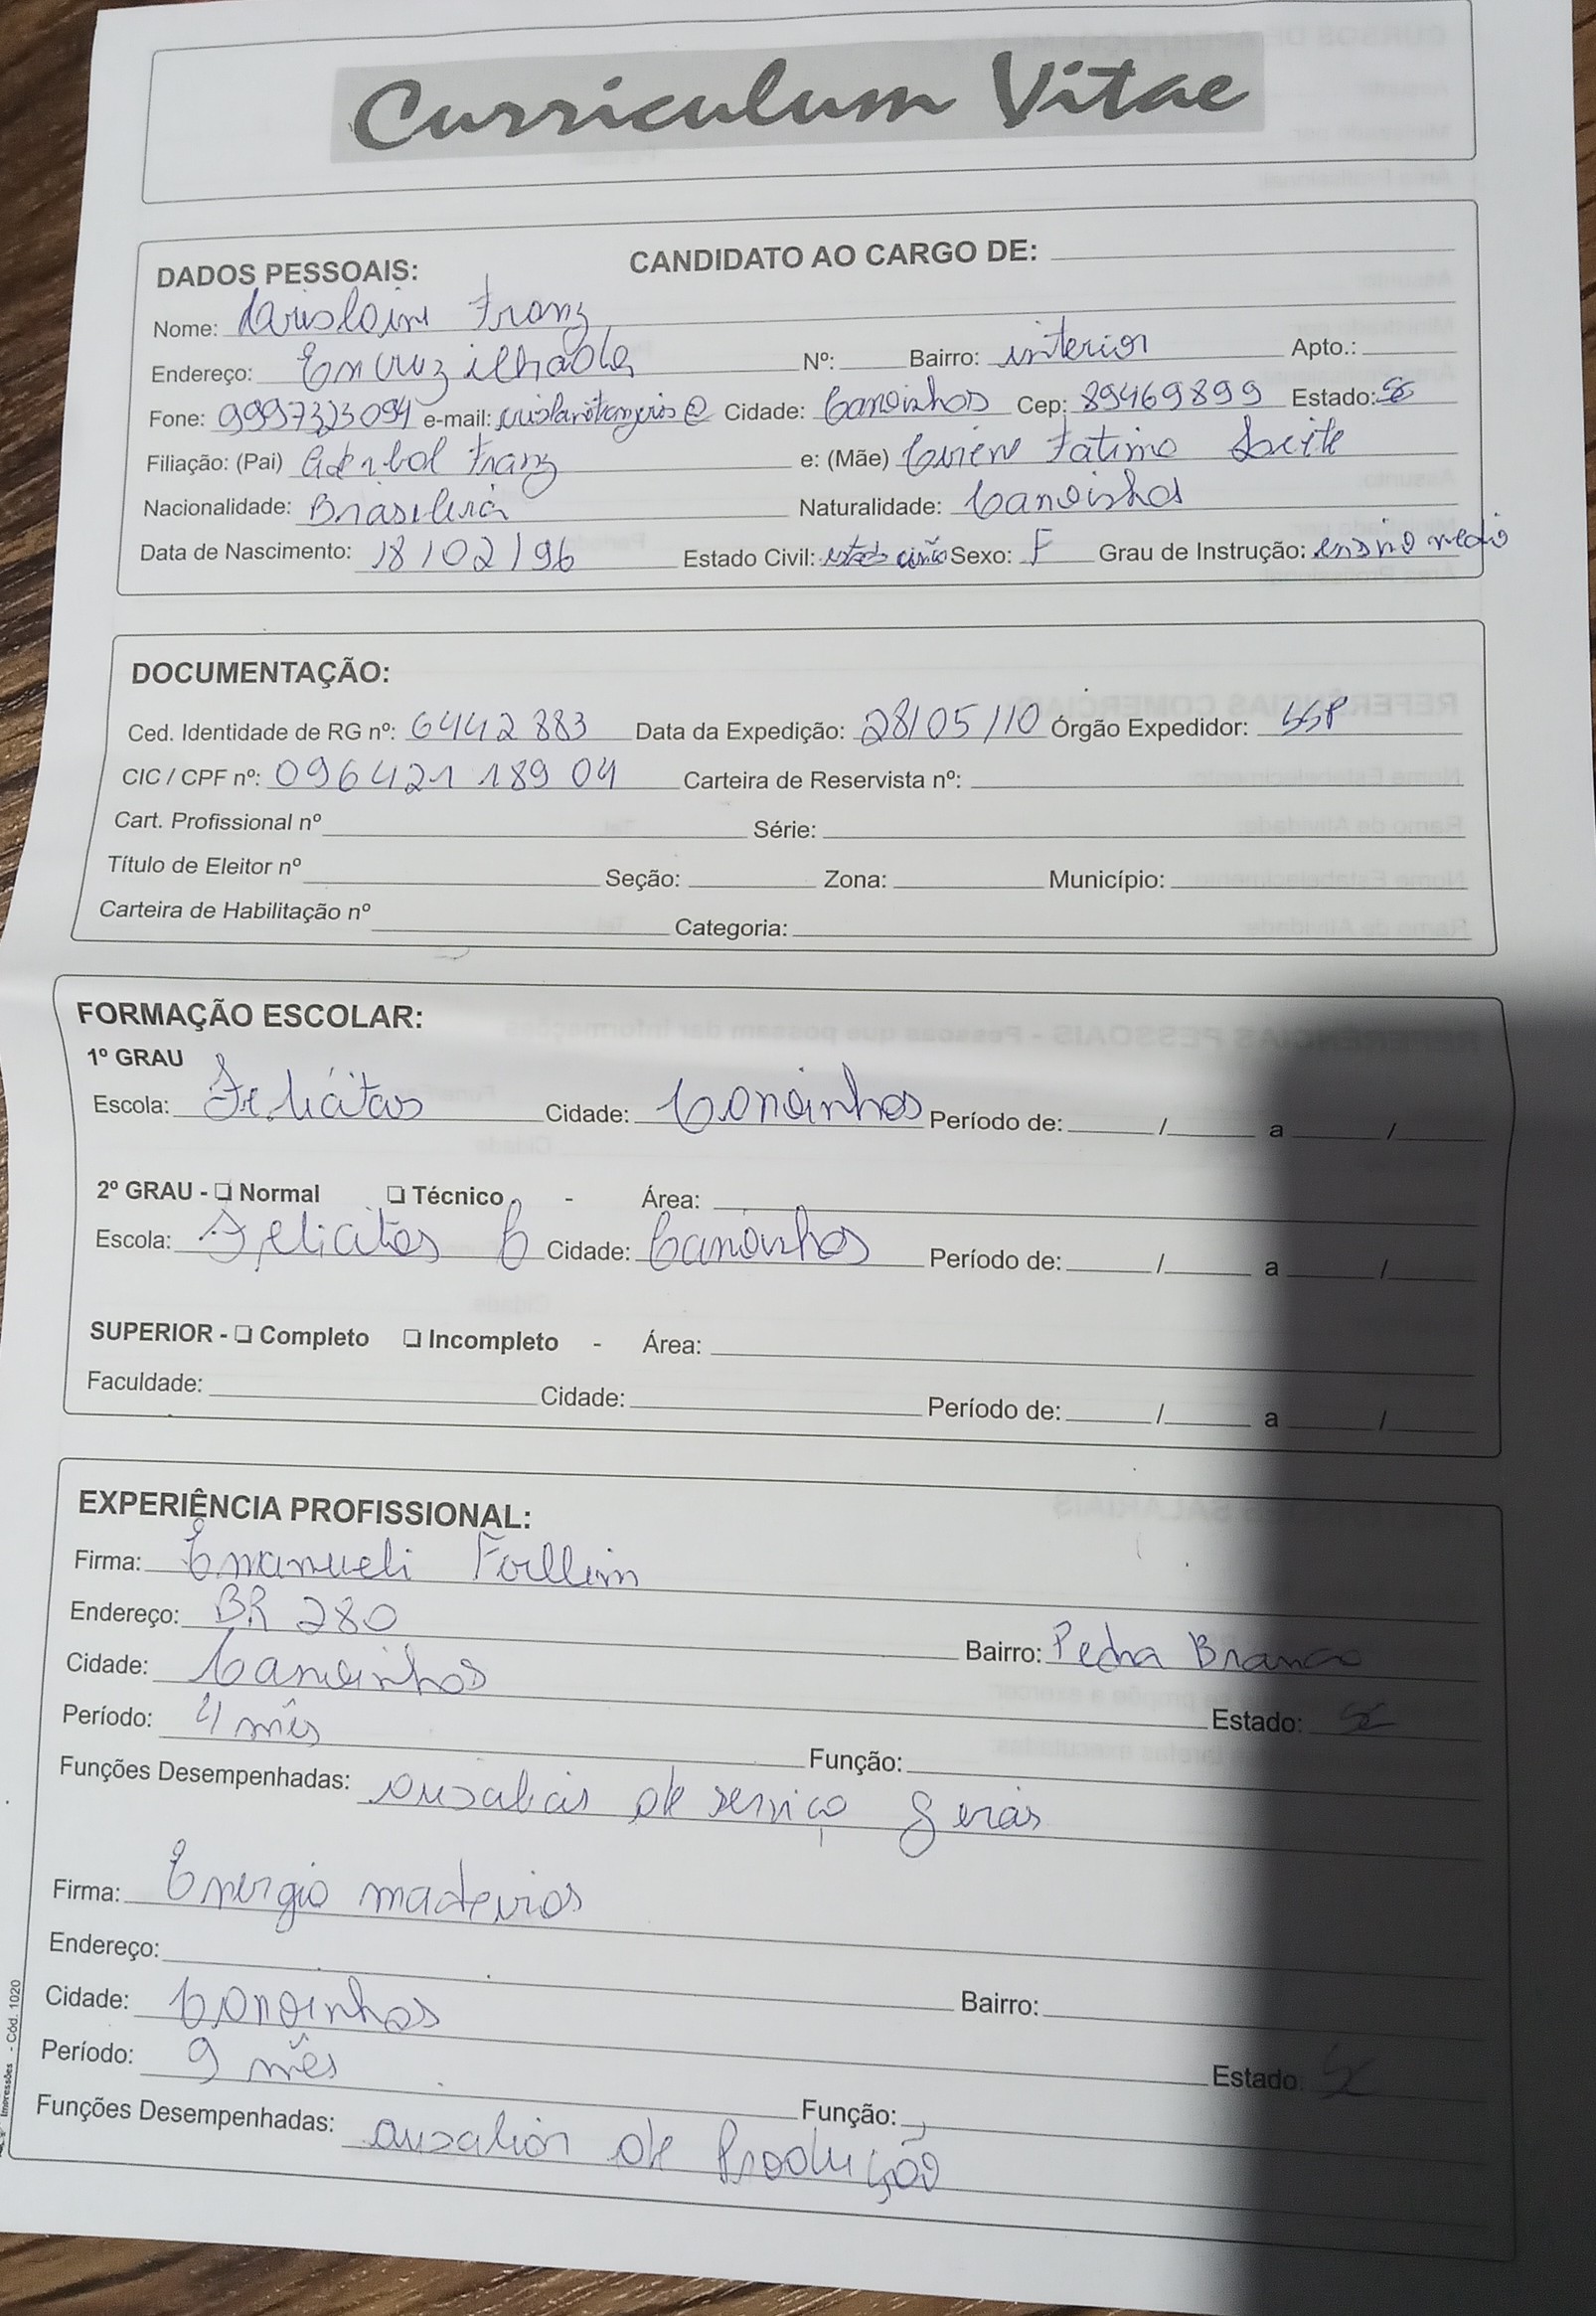 Curriculum Vitae
DADOS PESSOAIS: CANDIDATO AO CARGO DE:
Nome: Franz
Endereço: Encruzilhada Nº: Bairro: interior Apto.:
Fone: 9997323094 e-mail: Cidade: Canoinhas Cep: 89469899 Estado: SC
Filiação: (Pai) Franz e: (Mãe) Fatima
Nacionalidade: Brasileira Naturalidade: Canoinhas
Data de Nascimento: 18/02/96 Estado Civil: Sexo: F Grau de Instrução: ensino medio
DOCUMENTAÇÃO:
Ced. Identidade de RG nº: 6442883 Data da Expedição: 28/05/10 Órgão Expedidor: SSP
CIC / CPF nº: 096421 189 04 Carteira de Reservista nº:
Cart. Profissional nº Série:
Título de Eleitor nº Seção: Zona: Município:
Carteira de Habilitação nº Categoria:
FORMAÇÃO ESCOLAR:
1º GRAU
Escola: Felicitas Cidade: Canoinhas Período de: / a /
2º GRAU - ❑ Normal ❑ Técnico - Área:
Escola: Felicitas Cidade: Canoinhas Período de: / a /
SUPERIOR - ❑ Completo ❑ Incompleto - Área:
Faculdade: Cidade: Período de: / a /
EXPERIÊNCIA PROFISSIONAL:
Firma: Emanueli
Endereço: BR 280 Bairro: Pedra Branca
Cidade: Canoinhas Estado: SC
Período: 4 mês Função:
Funções Desempenhadas: de serviço gerais
Firma: Energia madeiras
Endereço: Bairro:
Cidade: Canoinhas Estado: SC
Período: 9 mês Função:
Funções Desempenhadas: de Produção
Impressões - Cód. 1020